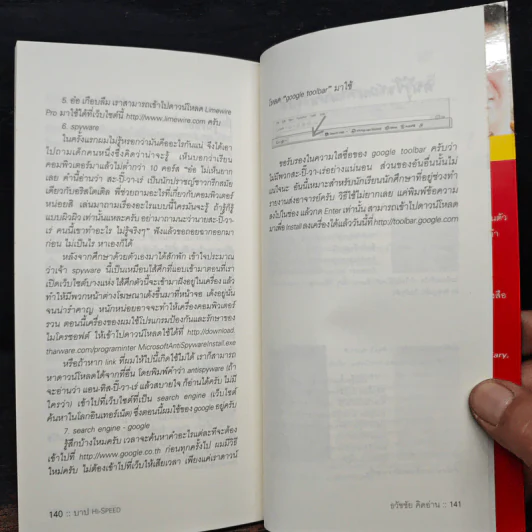 5. อ้อ เกือบลืม เราสามารถเข้าไปดาวน์โหลด Limewire
Pro มาใช้ได้ที่เว็บไซต์นี้ http://www.limewire.com ครับ
6. spyware
ในครั้งแรกผมไม่รู้หรอกว่ามันคืออะไรกันแน่ จึงได้เอา
ไปถามเด็กคนหนึ่งซึ่งคิดว่าน่าจะรู้ เห็นบอกว่าเรียน
คอมพิวเตอร์มาแล้วไม่ต่ำกว่า 10 คอร์ส "อ๋อ ไม่เห็นยาก
เลย คำนี้อ่านว่า สะ-ปี๊-วา-เร่ เป็นนักปราชญ์ชาวกรีกสมัย
เดียวกับอริสโตเติล พี่ช่วยถามอะไรที่เกี่ยวกับคอมพิวเตอร์
หน่อยสิ เล่นมาถามเรื่องอะไรแบบนี้ใครมันจะรู้ ถ้ารู้ก็รู้
แบบผิวผิว เท่านั้นแหละครับ อย่ามาถามนะว่านายสะ-ปี๊-วา-
เร่ คนนี้เขาทำอะไร ไม่รู้จริงๆ" ฟังแล้วขอถอยฉากออกมา
ก่อน ไม่เป็นไร หาเองก็ได้
หลังจากศึกษาด้วยตัวเองมาได้สักพัก เข้าใจประมาณ
ว่าเจ้า spyware นี้เป็นเหมือนไส้ศึกที่แอบเข้ามาตอนที่เรา
เปิดเว็บไซต์บางแห่ง ไส้ศึกตัวนี้จะเข้ามาฝังอยู่ในเครื่อง แล้ว
ทำให้มีพวกหน้าต่างโฆษณาเด้งขึ้นมาที่หน้าจอ เด้งอยู่นั่น
จนน่ารำคาญ หนักหน่อยอาจจะทำให้เครื่องคอมพิวเตอร์
รวน ตอนนี้เครื่องของผมใช้โปรแกรมป้องกันและรักษาของ
ไมโครซอฟต์ ให้เข้าไปดาวน์โหลดใช้ได้ที่ http://download.
thaiware.com/programinter MicrosoftAntiSpywareInstall.exe
หรือถ้าหาก link ที่ผมให้ไปนี้เกิดใช้ไม่ได้ เราก็สามารถ
หาดาวน์โหลดได้จากที่อื่น โดยพิมพ์คำว่า antispyware (ถ้า
จะอ่านว่า แอน-ทิส-ปี๊-วา-เร่ แล้วสบายใจ ก็อ่านได้ครับ ไม่มี
ใครว่า) เข้าไปที่เว็บไซต์ที่เป็น search engine (เว็บไซต์
ค้นหาในโลกอินเทอร์เน็ต) ซึ่งตอนนี้ผมใช้ของ google อยู่ครับ
7. search engine - google
รู้สึกบ้างไหมครับ เวลาจะค้นหาคำอะไรแต่ละทีจะต้อง
เข้าไปที่ http://www.google.co.th ก่อนทุกครั้งไป ผมมีวิธี
ใหม่ครับ ไม่ต้องเข้าไปที่เว็บให้เสียเวลา เพียงแค่เราดาวน์
140 :: บาป HI-SPEED
โหลด "google toolbar" มาใช้
ขอรับรองในความใสซื่อของ google toolbar ครับว่า
ไม่มีพวกสะ-ปี๊-วา-เร่อย่างแน่นอน ส่วนของอันอื่นนั้นไม่
แน่ใจนะ อันนี้เหมาะสำหรับนักเรียนนักศึกษาที่อยู่ช่วงทำ
รายงานส่งอาจารย์ครับ วิธีใช้ไม่ยากเลย แค่พิมพ์ข้อความ
ลงไปในช่อง แล้วกด Enter เท่านั้น สามารถเข้าไปดาวน์โหลด
มาเพื่อ Install ลงเครื่องได้แล้ววันนี้ที่ http://toolbar.google.com
ธวัชชัย คิดอ่าน :: 141